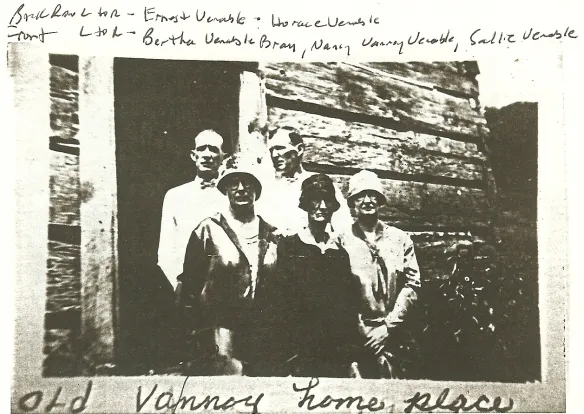 Back Row L to R - Ernest Venable - Horace Venable
Front L to R - Bertha Venable Bray, Nancy Vannoy Venable, Sallie Venable
OLd Vannoy home place